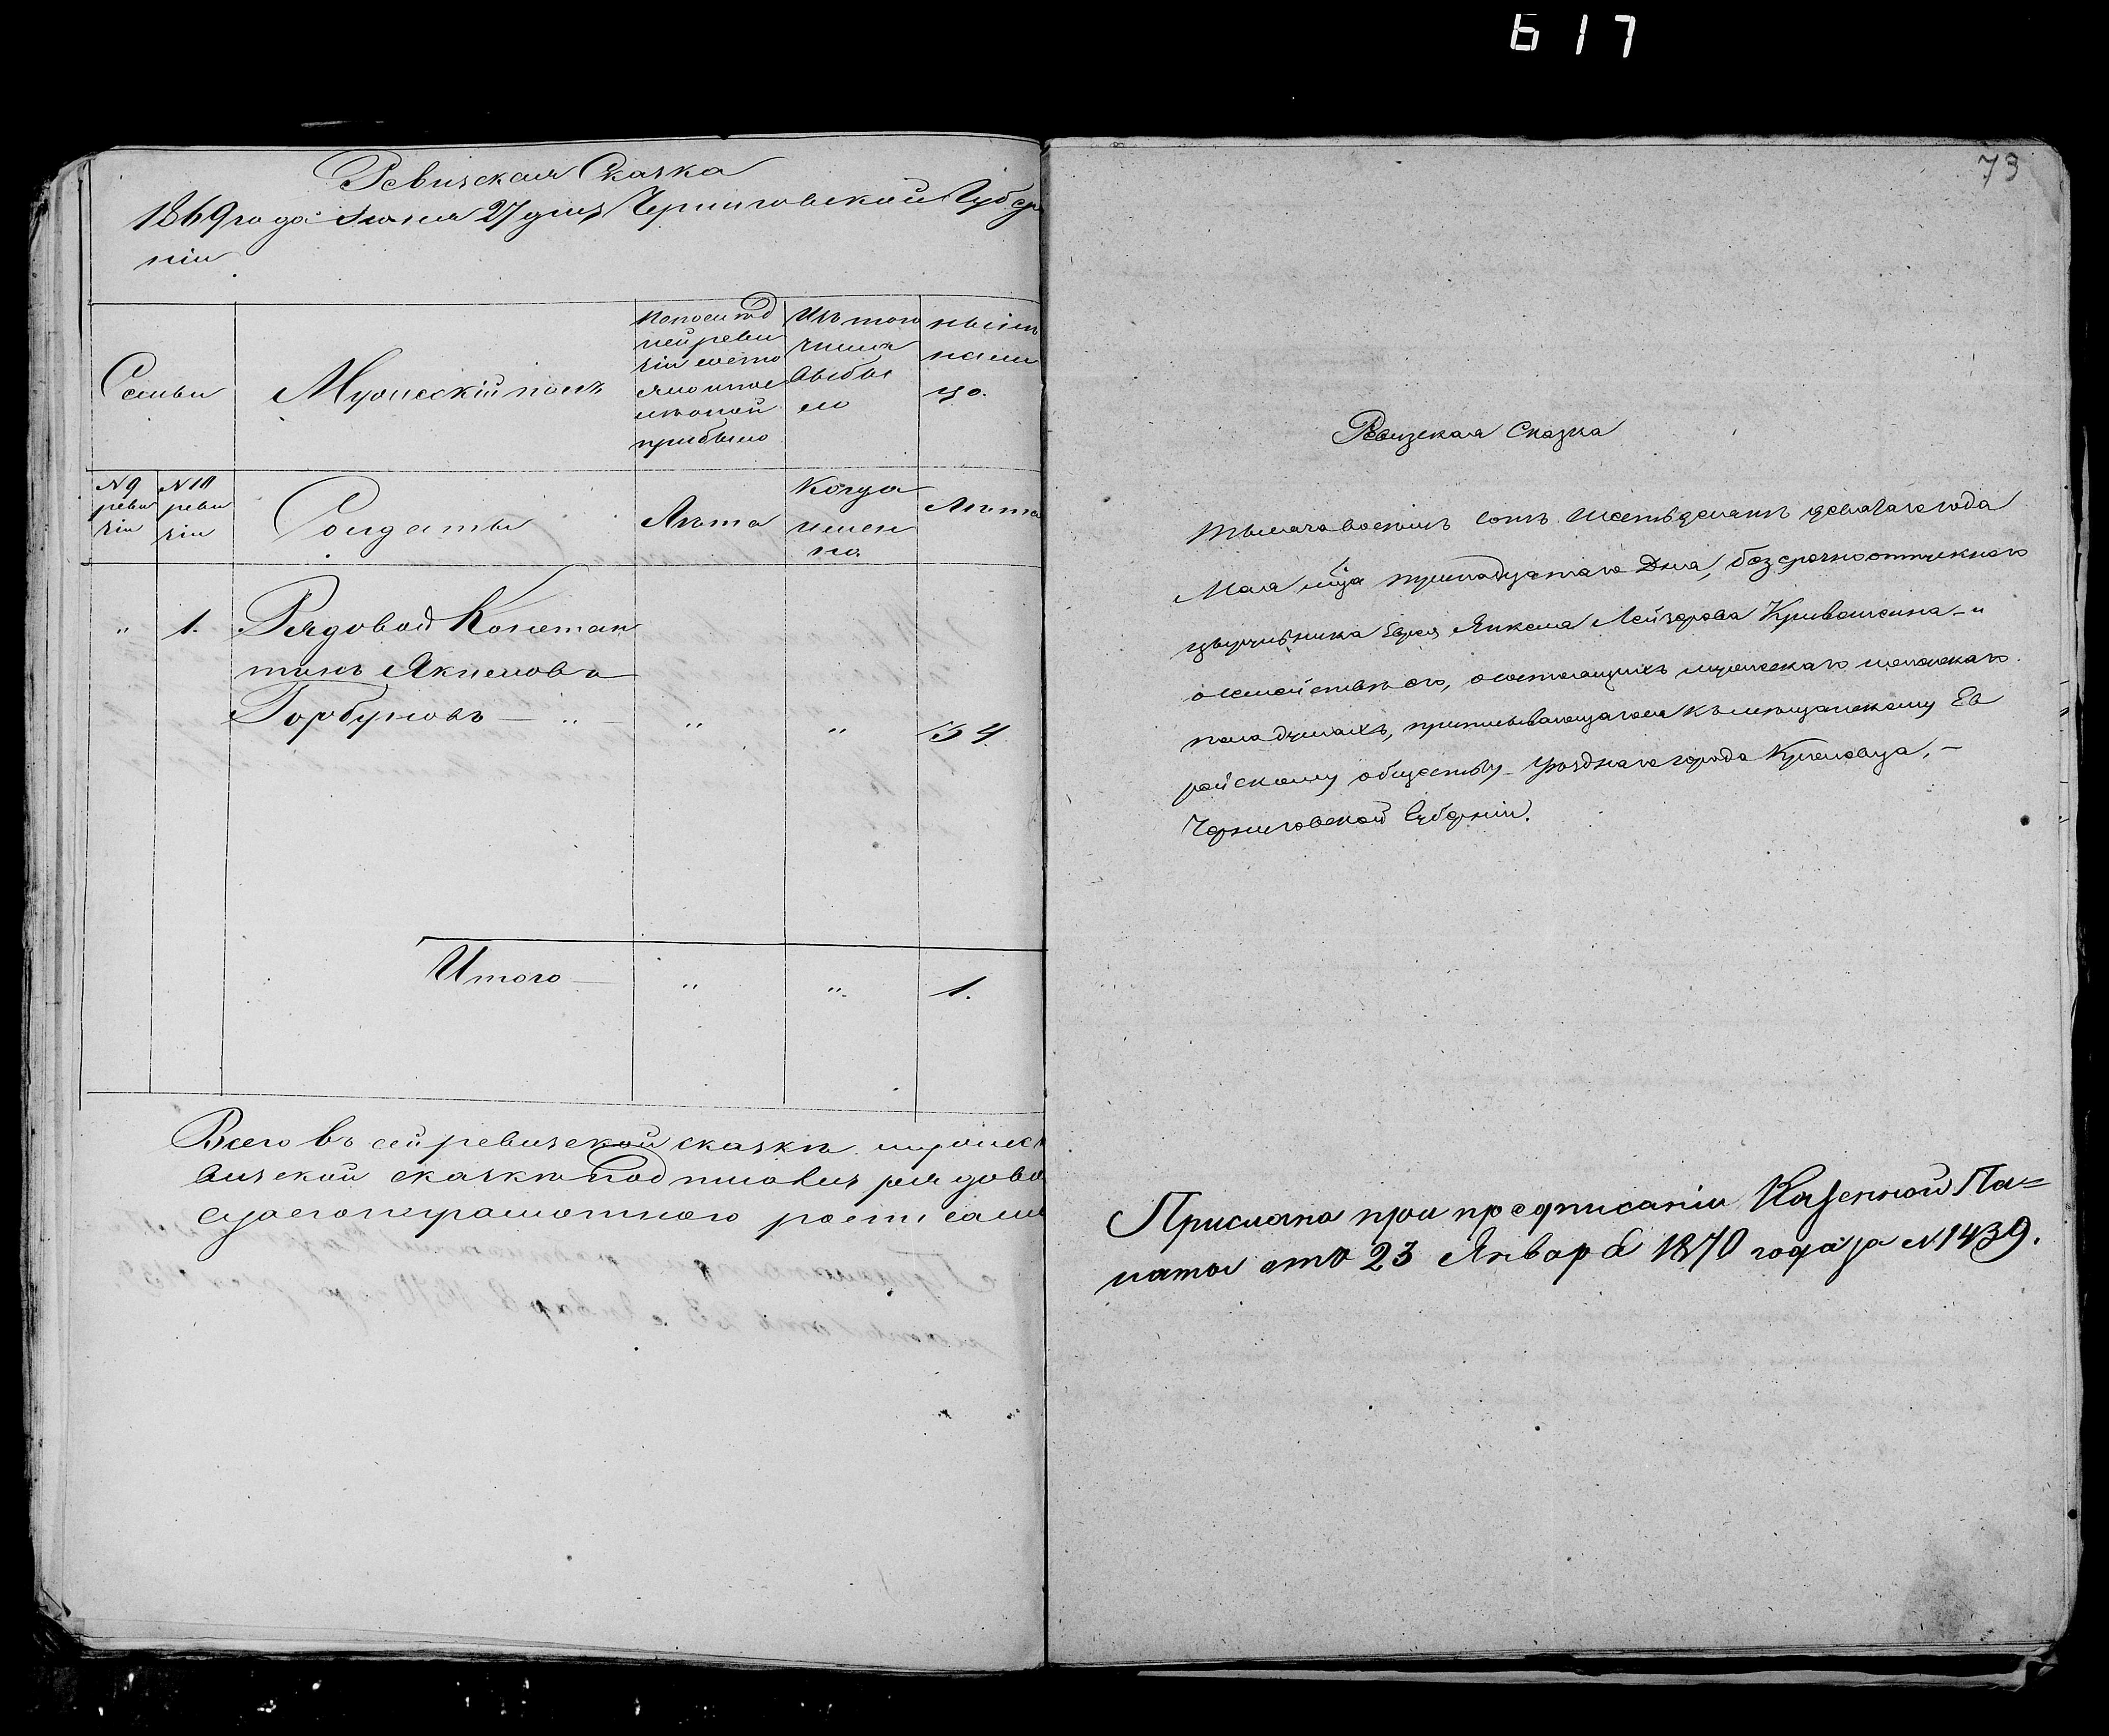 617
Ревизская Сказка
1869 года Июня 27 дня Черниговской Губер
ніи
Семьи
Мужескій полъ
По послѣд
ней реви
зіи состо
яло и пос
лѣ оной
прибыло
Изъ того
числа
выбы
ло
нынѣ
на ли
цо.
N 9
реви
зіи
N 10
реви
зіи
Солдаты
Лѣта
Когда
имен
но.
Лѣта
" 1. Рядовой Констан
тинъ Якимовъ
Горбуновъ — " — " " 34
Итого — " " 1.
Всего въ сей ревизской сказкѣ мужеск
визской сказкѣ подписался рядово
его неграмотного
73
Ревизская Сказка
Тысяча восемь сотъ шестьдесятъ девятаго года
Мая мца тринадцатаго Дня, безсрочноотпускного
Еврея Янкеля Лейзерова Кривошеина — и
о семействѣ его, состоящихъ мужескаго и женскаго
пола душахъ, приписывающагося къ мѣщанскому Ев
рейскому обществу уѣзднаго города Кролевца, —
Черниговской Губерніи.
Прислана при предписаніи Казенной Па=
латы отъ 23 Января 1870 года за N 1439.